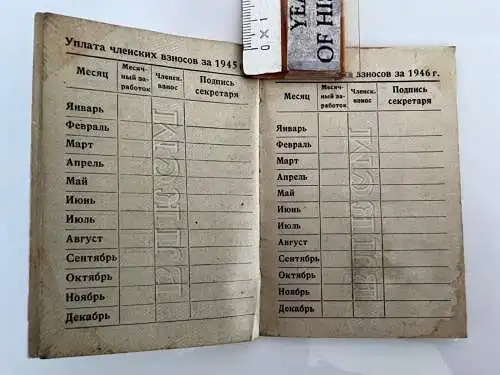 Уплата членских взносов за 1945
Месяц
Месяч-
ный за-
работок
Членск.
взнос
Подпись
секретаря
Январь
Февраль
Март
Апрель
Май
Июнь
Июль
Август
Сентябрь
Октябрь
Ноябрь
Декабрь
взносов за 1946 г.
Месяц
Месяч-
ный за-
работок
Членск.
взнос
Подпись
секретаря
Январь
Февраль
Март
Апрель
Май
Июнь
Июль
Август
Сентябрь
Октябрь
Ноябрь
Декабрь
ВЛКСМ
ВЛКСМ
0 X 1
YEA
OF HI